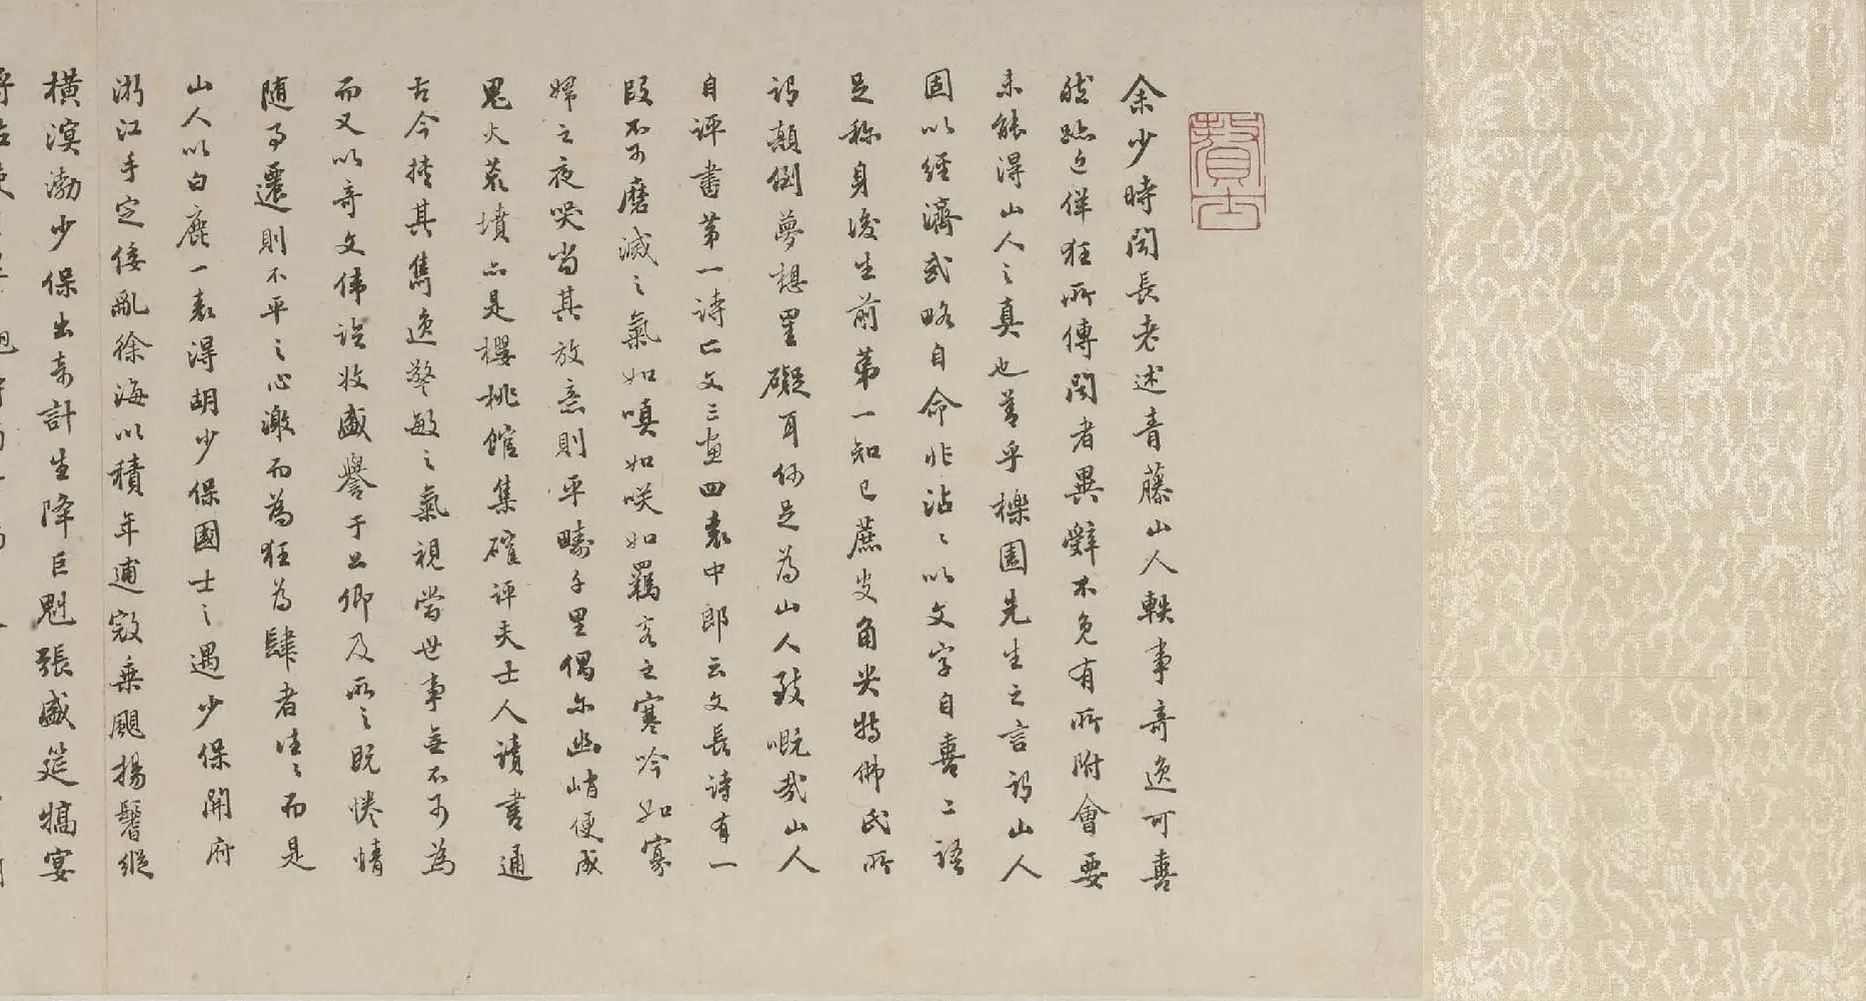 余少時聞長老述青藤山人軼事奇逸可喜
然跡近佯狂所傳聞者異辭不免有所附會要
未能得山人之真也善乎櫟園先生之言謂山人
固以經濟武略自命非沾〻以文字自喜二語
足称身後生前第一知己蔗皮角尖特佛氏所
謂顛倒夢想罣礙耳何足為山人致嘅哉山人
自評書第一詩二文三畫四袁中郎云文長詩有一
段不可磨滅之氣如嗔如笑如羈客之寒吟如寡
婦之夜哭當其放意則平疇千里偶尔幽峭便成
鬼火荒墳亦是櫻桃館集確評夫士人讀書通
古今挾其雋逸警敏之氣視當世事無不可為
而又以奇文偉論收盛譽于公卿及所之既惓情
随事遷則不平之心激而為狂為肆者往〻而是
山人以白鹿一表得胡少保國士之遇少保開府
浙江手定倭亂徐海以積年逋寇乘颶揚鬐縱
橫溟渤少保出奇計生降巨魁張盛筵犒宴